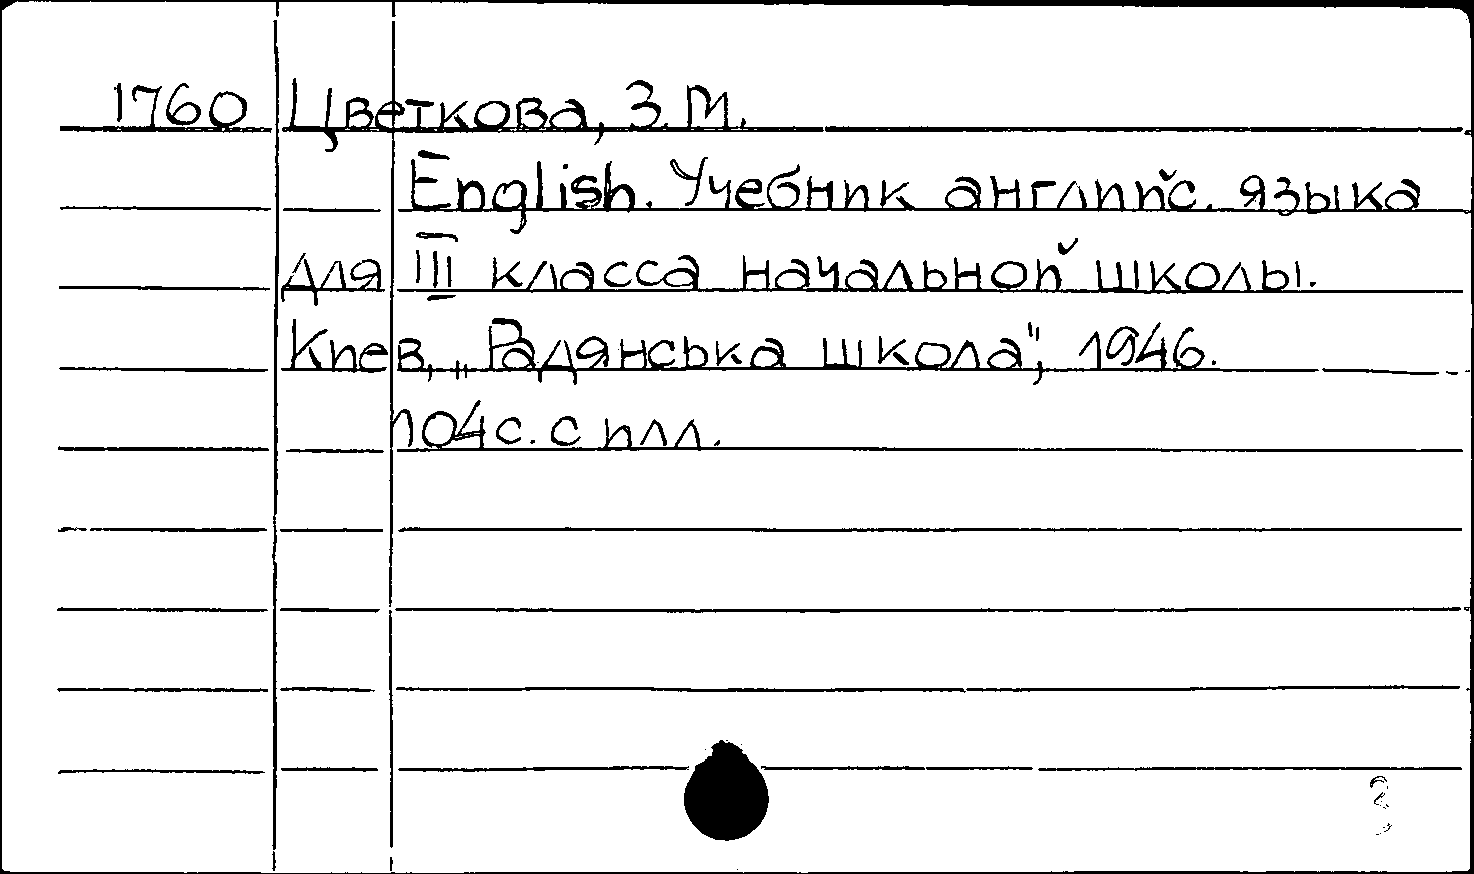 1760 Цветкова, З. М.
English. Учебник английс. языка
для III класса начальной школы.
Киев, „Радянська школа", 1946.
104 с. с илл.